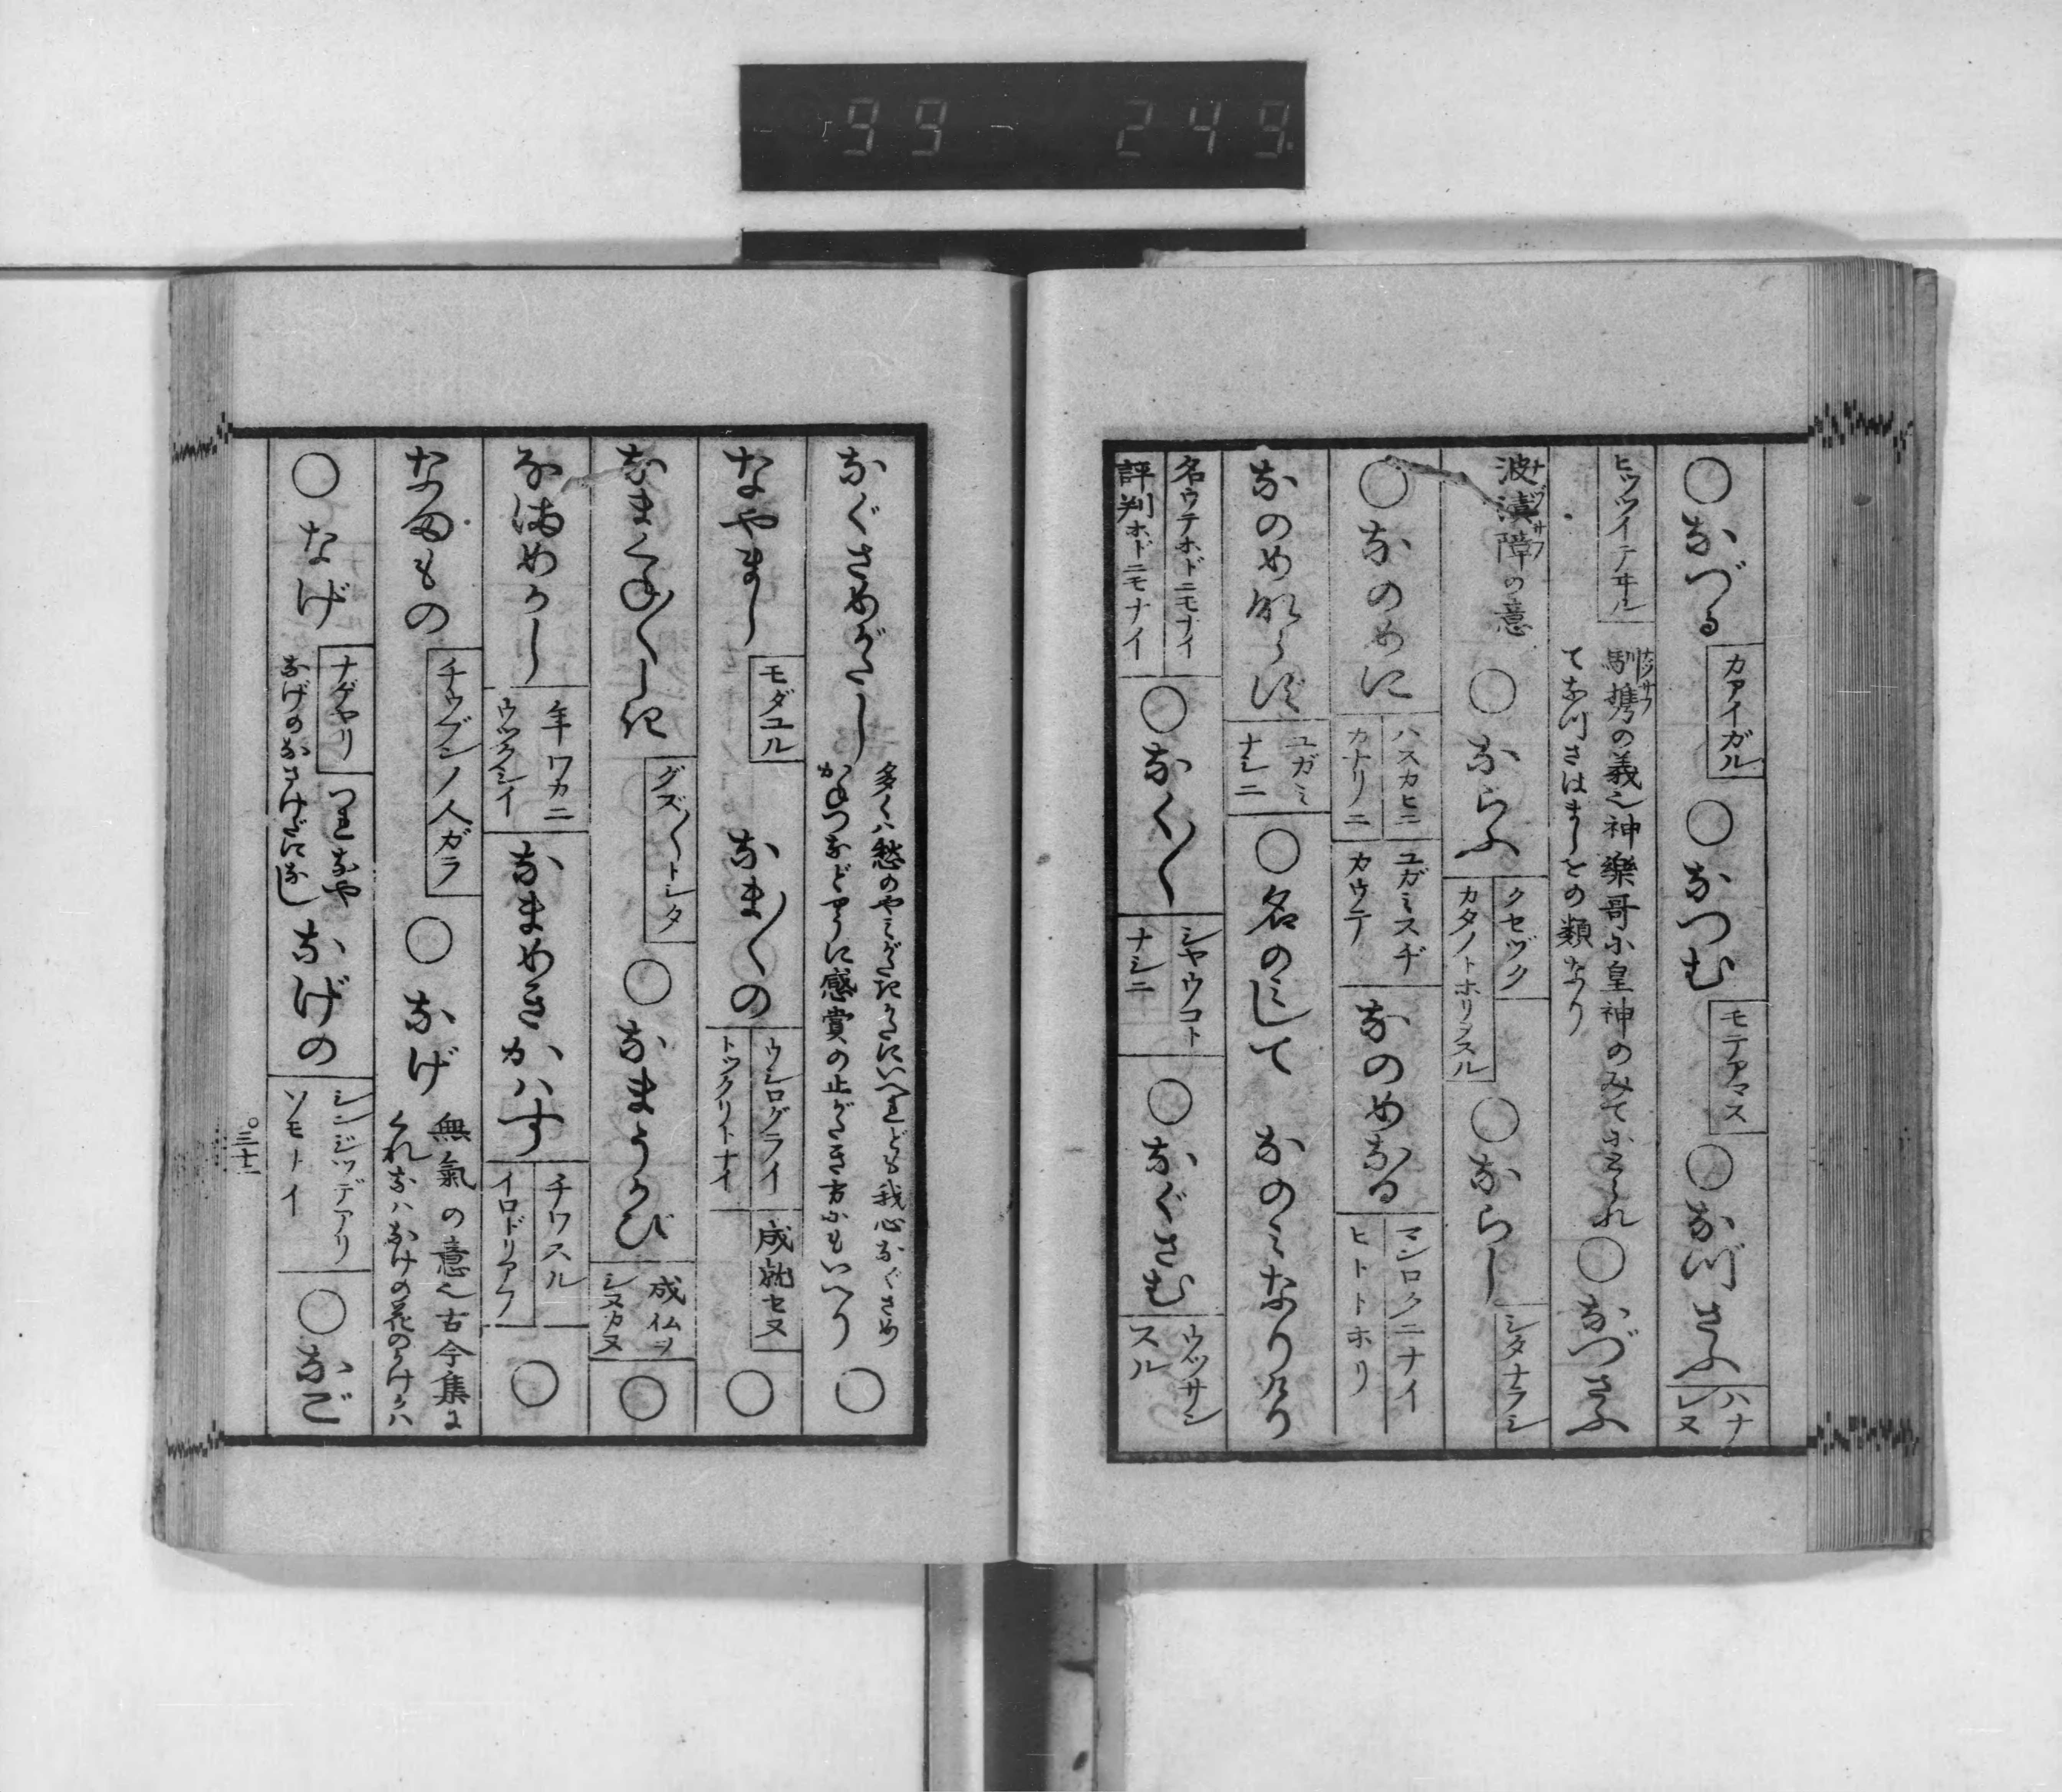 99 249
○なづる カアイガル ○なづむ モテアマス ○なづさふ ハナレヌ
ヒツツイテヰル 馴携の義也神樂哥に皇神のみてにとられてなづさはましをの類なり ○なづさふ
波瀆障の意 ○ならふ クセヅク カタノトホリニスル ○ならし シタナラシ
○なのめに ハスカヒニ カナリニ ユガミスヂカウテ なのめなる マンロクニナイ ヒトトホリ
なのめならず ユガミナシニ ○名のみして なのみなりけり
名ウテホドニモナイ 評判ホドニモナイ ○なく〳〵 シヤウコトナシニ ○なぐさむ ウツサンスル
なぐさめがたし 多くハ愁のやみがたきかたにいへれども我心なぐさめかねつなどやうに感賞の止がたき方にもいへり ○
なやまし モダユル なま〳〵の ウシログライ トツクリトナイ 成就セヌ ○
なまくね〳〵しき グズ〳〵トシタ ○なまうかび 成仏ヲシヌカヌ ○
なまめかし 年ワカニウツクシイ なまめきかハす チワスル イロドリアフ ○
なまもの チウブンノ人ガラ ○なげ 無氣の意也古今集にくれなハなけの花のかけかハ
○なげ ナゲヤリ つれなや なげのなさけだになし なげの シンジツデアリソモナイ ○なご
三十二